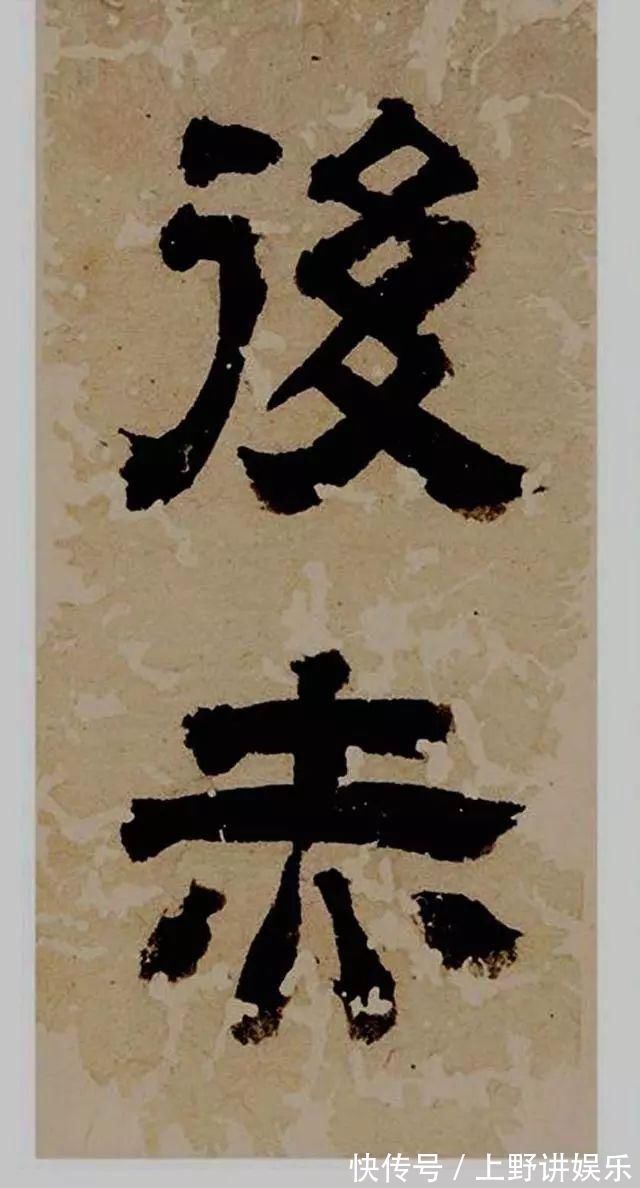 後
赤
快传号/上野讲娱乐